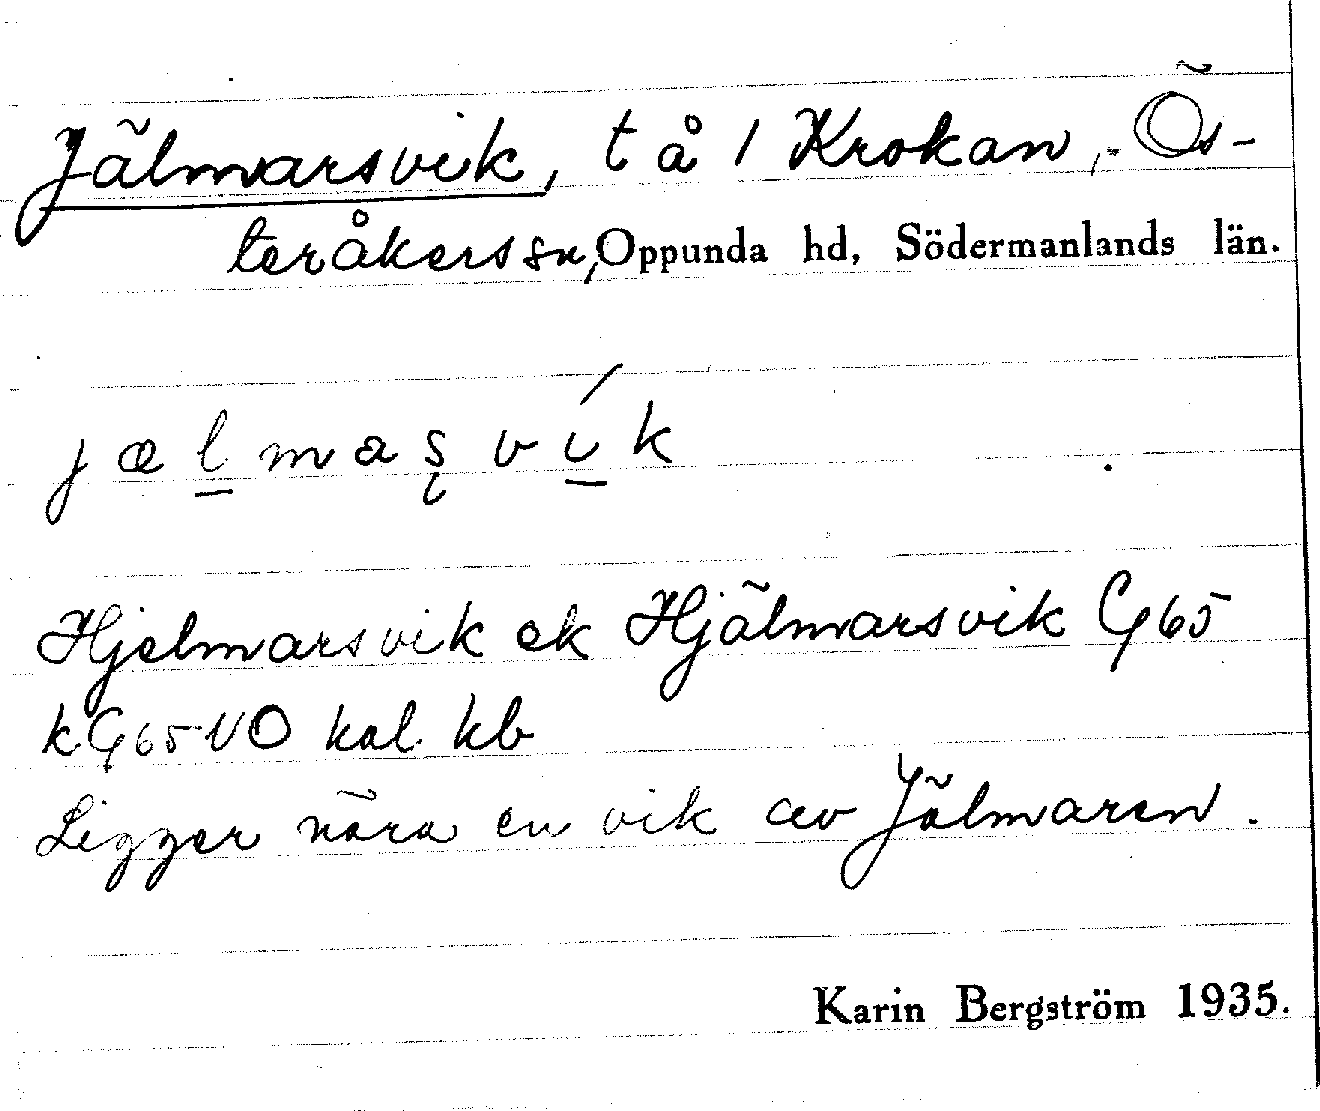 Jälmarsvik, t å 1 Krokan, Ös-
teråkers sn, Oppunda hd, Södermanlands län.
jælmaʂvík
Hjelmarsvik ek Hjälmarsvik G65
kG65 NO kal kb
Ligger nära en vik av Jälmaren.
Karin Bergström 1935.